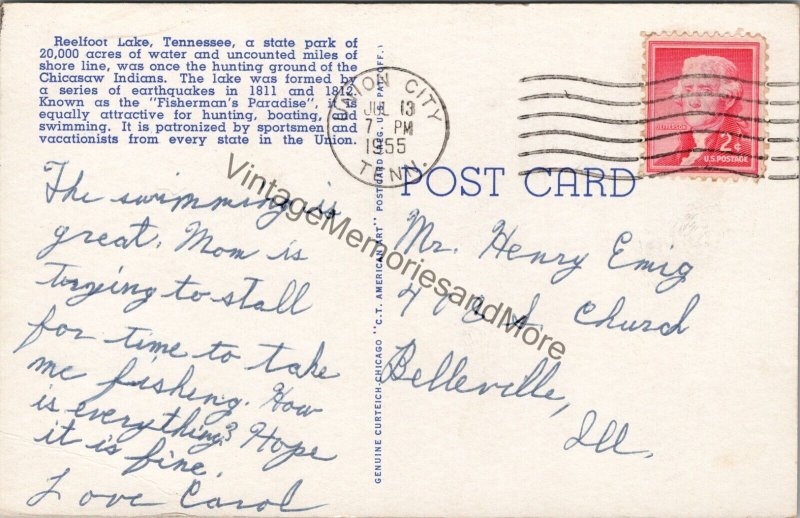 Reelfoot Lake, Tennessee, a state park of
20,000 acres of water and uncounted miles of
shore line, was once the hunting ground of the
Chicasaw Indians. The lake was formed by
a series of earthquakes in 1811 and 1812.
Known as the "Fisherman's Paradise", it is
equally attractive for hunting, boating, and
swimming. It is patronized by sportsmen and
vacationists from every state in the Union.
The swimming is
great. Mom is
trying to stall
for time to take
me fishing. How
is everything? Hope
it is fine.
Love Carol
GENUINE CURTEICH-CHICAGO "C.T. AMERICAN ART" POST CARD REG. U.S. PAT. OFF.
UNION CITY
JUL 13
7 PM
1955
TENN.
JEFFERSON
2¢
U.S. POSTAGE
POST CARD
Mr. Henry Emig
S. Church
Belleville,
Ill.
VintageMemoriesandMore